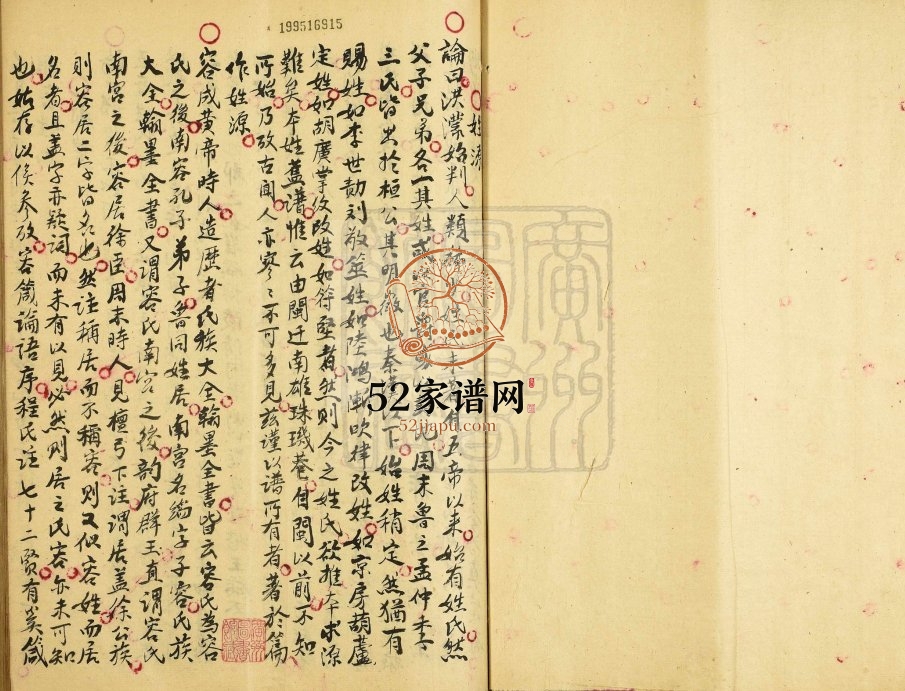 199516915
姓源
論曰洪濛始判人類 姓 未 五帝以来始有姓氏然
父子兄弟各一其姓或 官 周末魯之孟仲季
三氏皆出於桓公其明徵也秦 以下始姓稍定然猶有
賜姓如李世勣刘敬筮姓如陸鴻漸吹律改姓如京房葫蘆
定姓如胡廣 改姓如符堅者然則今之姓氏欲推本求源
難矣本姓舊譜惟云由閩迁南雄珠璣巷自閩以前不知
所始乃攷古聞人亦寥々不可多見茲谨以譜所有者著於篇
作姓源
容成黄帝時人造歷者氏族大全翰墨全書皆云容氏為容
氏之後南容孔子弟子魯同姓居南宫名縚字子容氏族
大全翰墨全書又謂容氏南宫之後韵府群玉直謂容氏
南宫之後容居徐臣周末時人見檀弓下註謂居盖徐公族
則容居二字皆名也然註稱居而不稱容則又似容姓而居
名者且盖字亦疑詞而未有以見必然則居之氏容亦未可知
也始存以俟参攷容箴論語序程氏註七十二賢有奚箴
52家谱网
52jiapu.com